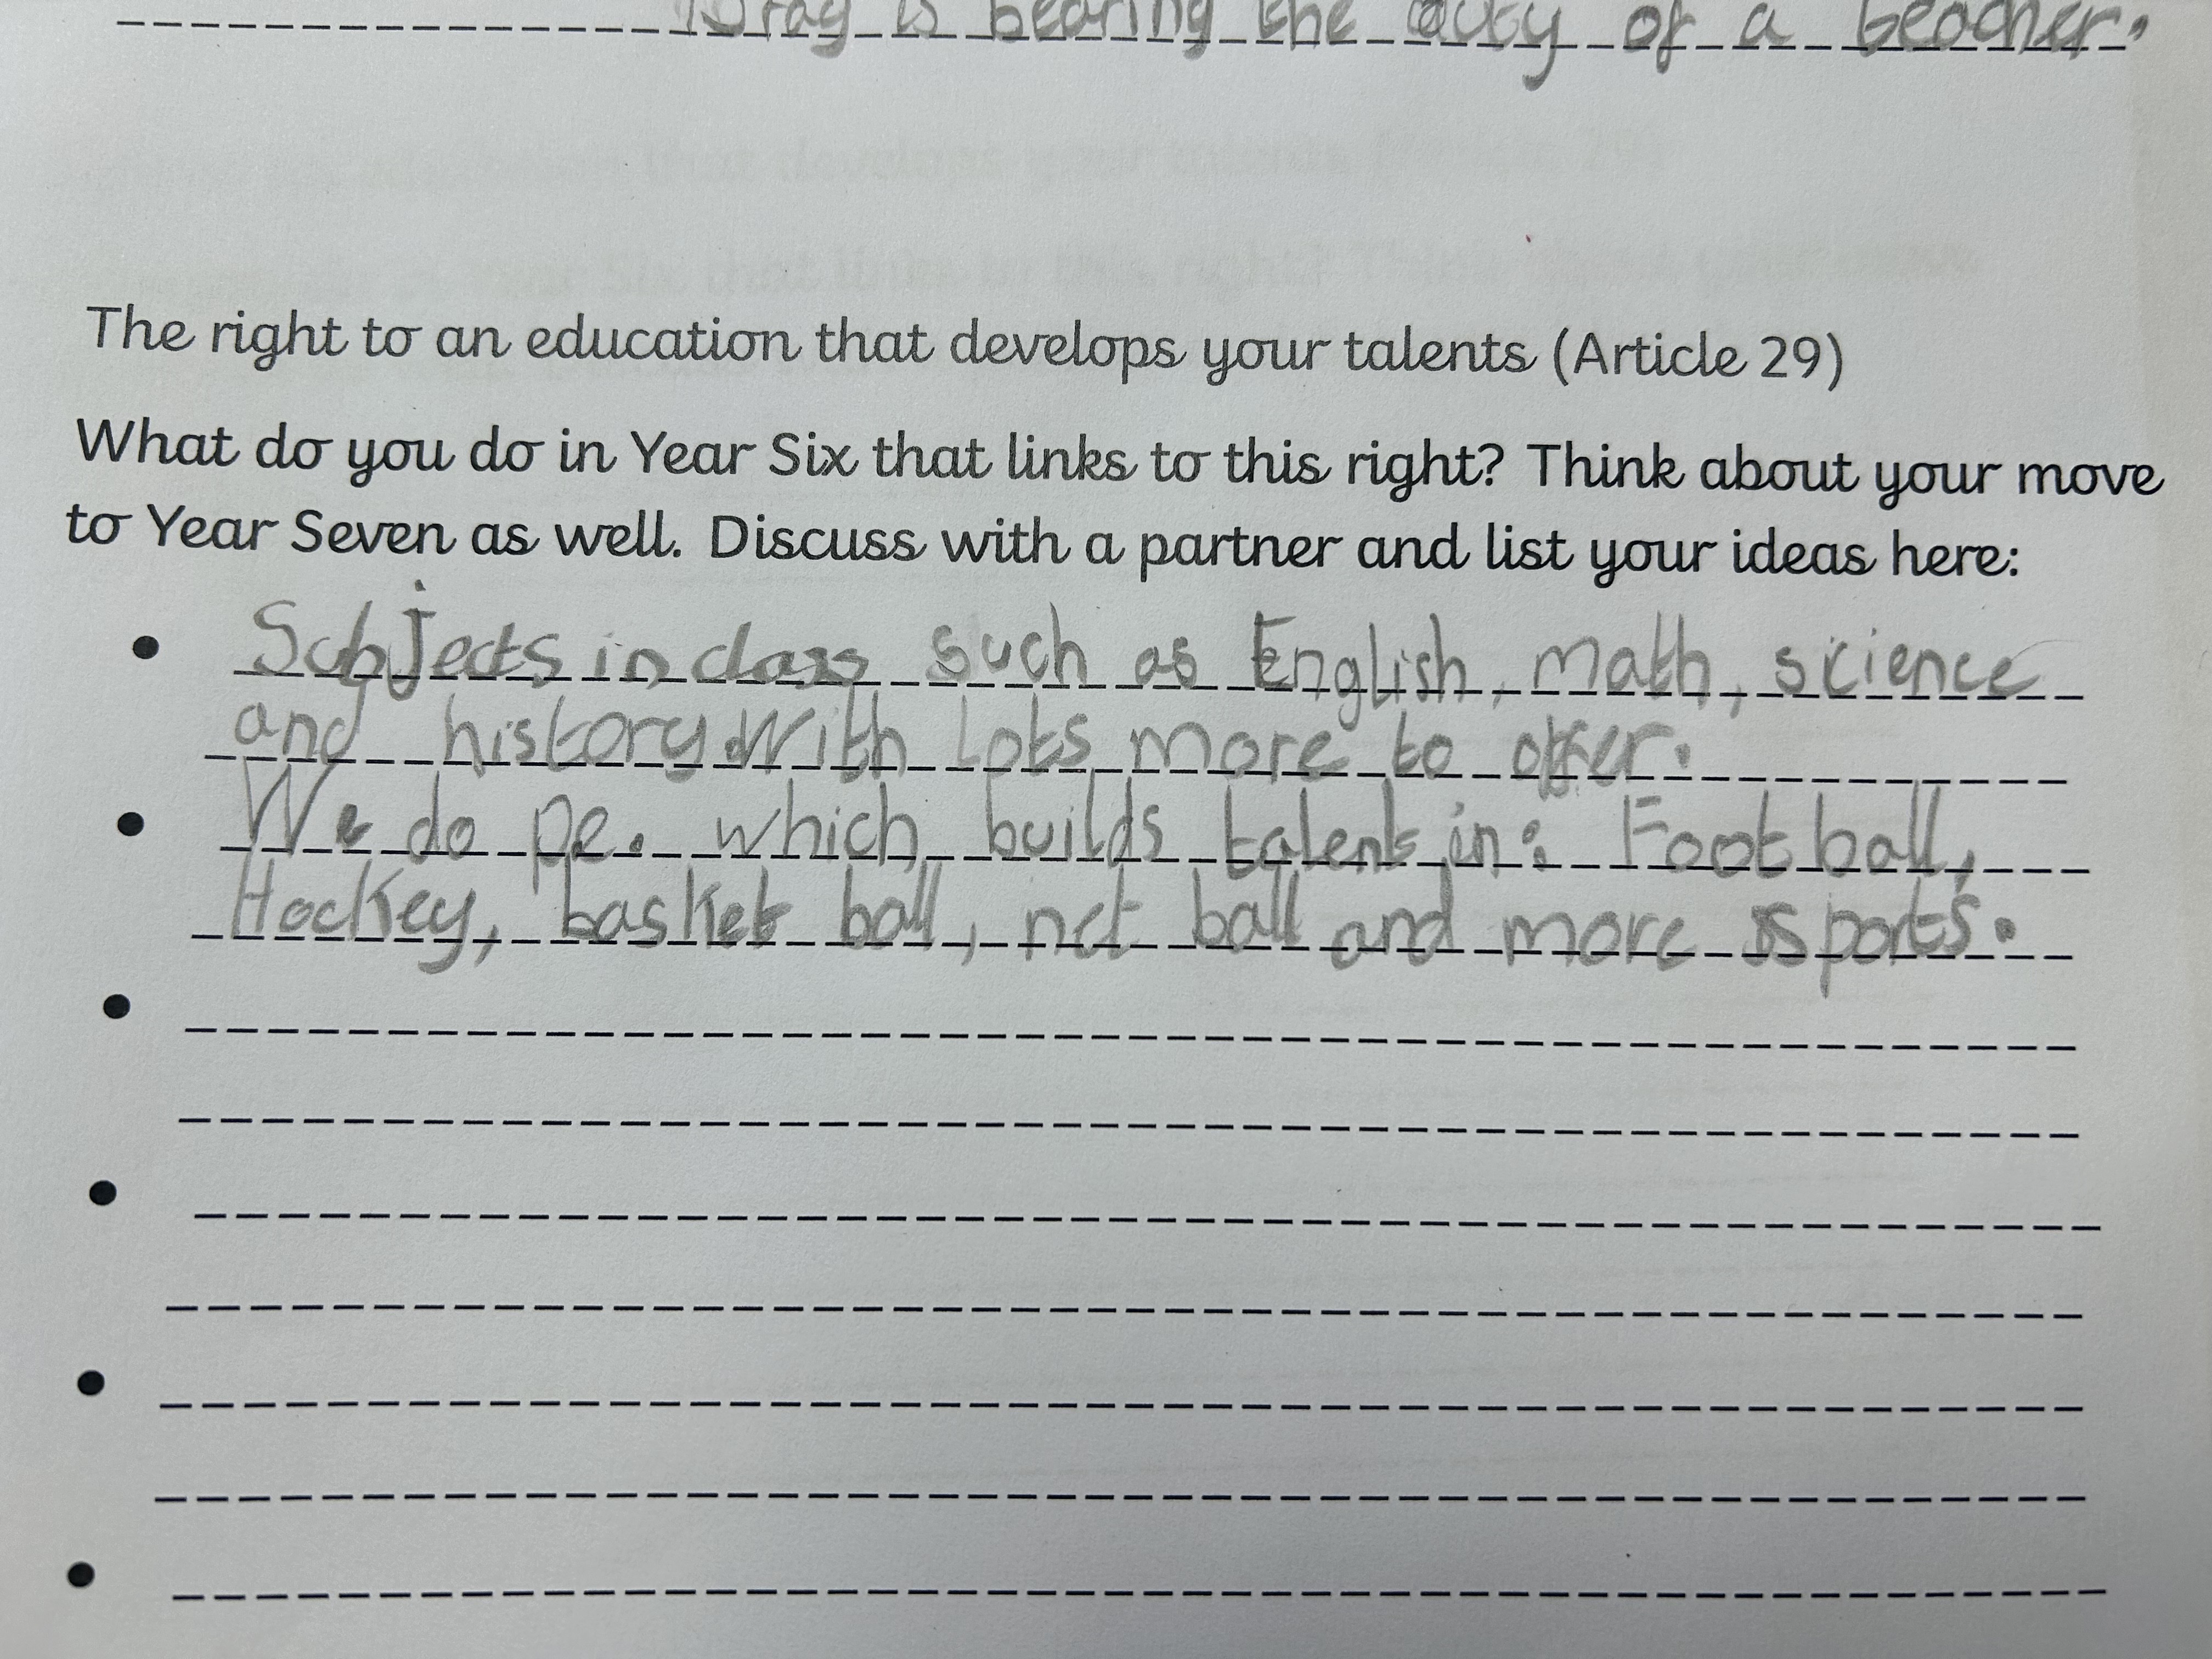 is bearing the duty of a teacher.
The right to an education that develops your talents (Article 29)
What do you do in Year Six that links to this right? Think about your move
to Year Seven as well. Discuss with a partner and list your ideas here:
• Subjects in class such as English, math, science
and history. With lots more to offer.
• We do pe. which builds talent in: Football,
Hockey, basket ball, net ball and more sports.
•
•
•
•